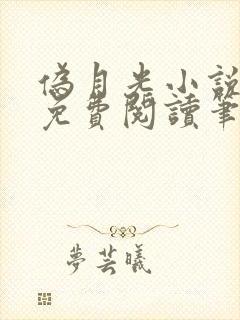 偽月光小說
免費閱讀筆
夢芸曦